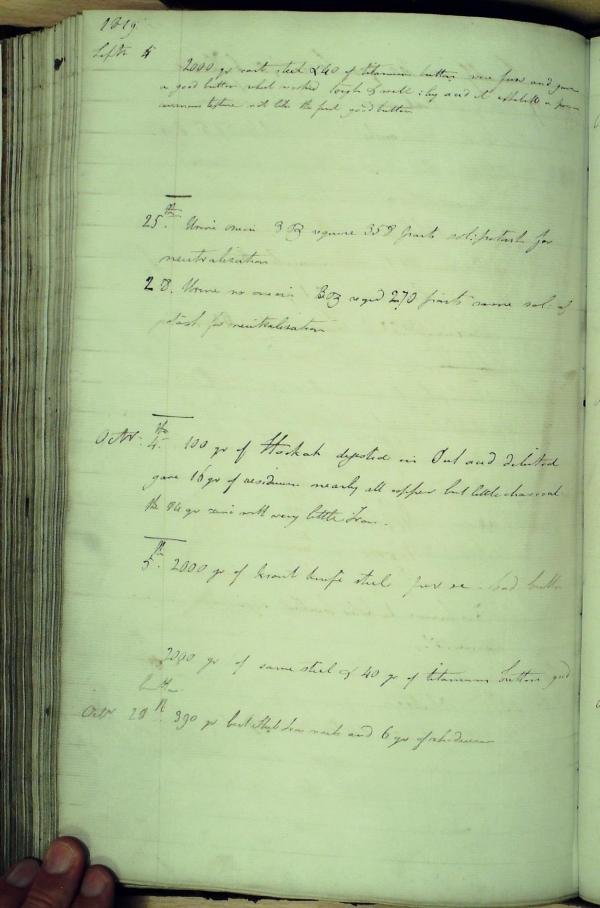 1819.
Septr 4
2000 gr cast steel & 40 of titanium button were fused and gave
a good button which worked tough & well : by acid it exhibits a
texture not like the first good button
25th. Urine 3 oz require 358 parts sol: potash for
neutralisation
28. Urine no 3 oz reqd 270 parts same sol: of
potash for neutralisation
Octr. 4th. 100 gr of Hookah digested in Sul acid diluted
gave 16 gr of residuum nearly all copper but little charcoal
the 84 gr zinc with very little Iron.
5th. 2000 gr of knife steel fused bad button
2000 gr of same steel & 40 gr of titanium button good
button
Octr 28th. 390 gr best Iron nails and 6 gr of rhodium